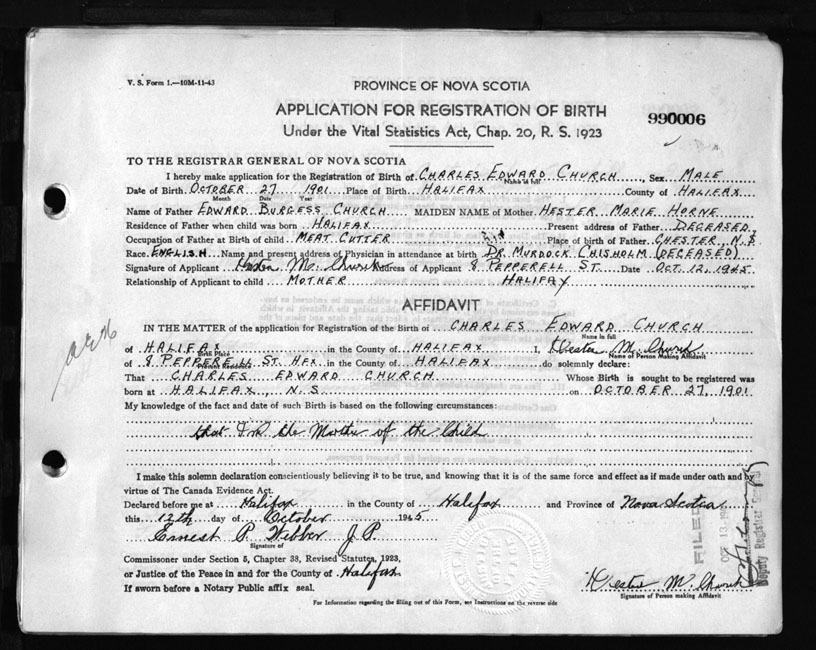 V. S. Form 1.—10M-11-43
PROVINCE OF NOVA SCOTIA
APPLICATION FOR REGISTRATION OF BIRTH
990006
Under the Vital Statistics Act, Chap. 20, R. S. 1923
TO THE REGISTRAR GENERAL OF NOVA SCOTIA
I hereby make application for the Registration of Birth of CHARLES EDWARD CHURCH, Sex MALE
Name in full
Date of Birth OCTOBER 27 1901 Place of Birth HALIFAX County of HALIFAX
Month Date Year
Name of Father EDWARD BURGESS CHURCH MAIDEN NAME of Mother HESTER MARIE HORNE
Residence of Father when child was born HALIFAX Present address of Father DECEASED
Occupation of Father at Birth of child MEAT CUTTER Place of birth of Father CHESTER, N.S.
Race ENGLISH Name and present address of Physician in attendance at birth DR. MURDOCK CHISHOLM (DECEASED)
Signature of Applicant Hester M. Church Address of Applicant 8 PEPPERELL ST. Date OCT. 12, 1945
Relationship of Applicant to child MOTHER HALIFAX
AFFIDAVIT
IN THE MATTER of the application for Registration of the Birth of CHARLES EDWARD CHURCH
Name in full
of HALIFAX in the County of HALIFAX I, Hester M. Church
Birth Place Name of Person Making Affidavit
of 8 PEPPERELL ST. HFX. in the County of HALIFAX do solemnly declare:
Present Residence
That CHARLES EDWARD CHURCH Whose Birth is sought to be registered was
born at HALIFAX, N.S. on OCTOBER 27, 1901
My knowledge of the fact and date of such Birth is based on the following circumstances:
that I am the Mother of the Child
I make this solemn declaration conscientiously believing it to be true, and knowing that it is of the same force and effect as if made under oath and by
virtue of The Canada Evidence Act.
Declared before me at Halifax in the County of Halifax and Province of Nova Scotia
this 12th day of October 1945
Ernest P. Webber J.P.
Signature of
Commissoner under Section 5, Chapter 38, Revised Statutes, 1923,
or Justice of the Peace in and for the County of Halifax
If sworn before a Notary Public affix seal.
Hester M. Church
Signature of Person making Affidavit
For Information regarding the filling out of this Form, see Instructions on the reverse side
FILED
Deputy Registrar